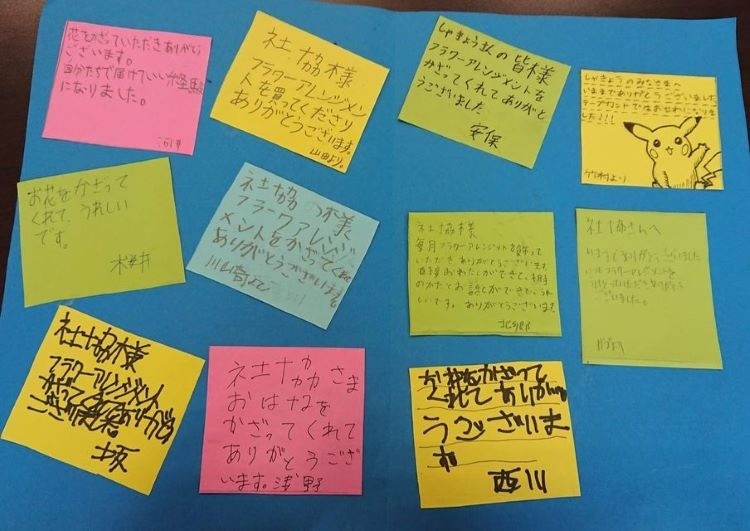 花をかざっていただきありがとう
ございます。
自分たちで届けていい経験
になりました。
社協様
フラワーアレンジメン
トを買ってくださり
ありがとうございます。
山田より。
しゃきょうさんの皆様
フラワーアレンジメントを
かざってくれてありがと
うございました
安保
しゃきょうのみなさまへ
いままでありがとうございました
テープカットではおせわになりま
した!!!
竹村より
お花をかざって
くれて、うれしい
です。
桜井
社協の様
フラーワアレンジ
メントをかざってくれて
ありがとうございます
川崎より
社協様
毎月フラワーアレンジメントを飾って
いただきありがとうございます。
直接おわたしができて、
のかたとお話しができたのもうれ
しいです。ありがとうございます。
北郷
社協さんへ
いままでありがとうございました
ございました。
社協様
フラワーアレンジメント
かざってくれてありがとう
ございました。
坂
社協さま
おはなを
かざってくれて
ありがとうござ
います。浅野
お花をかざって
くれてありがと
うございま
す
西川